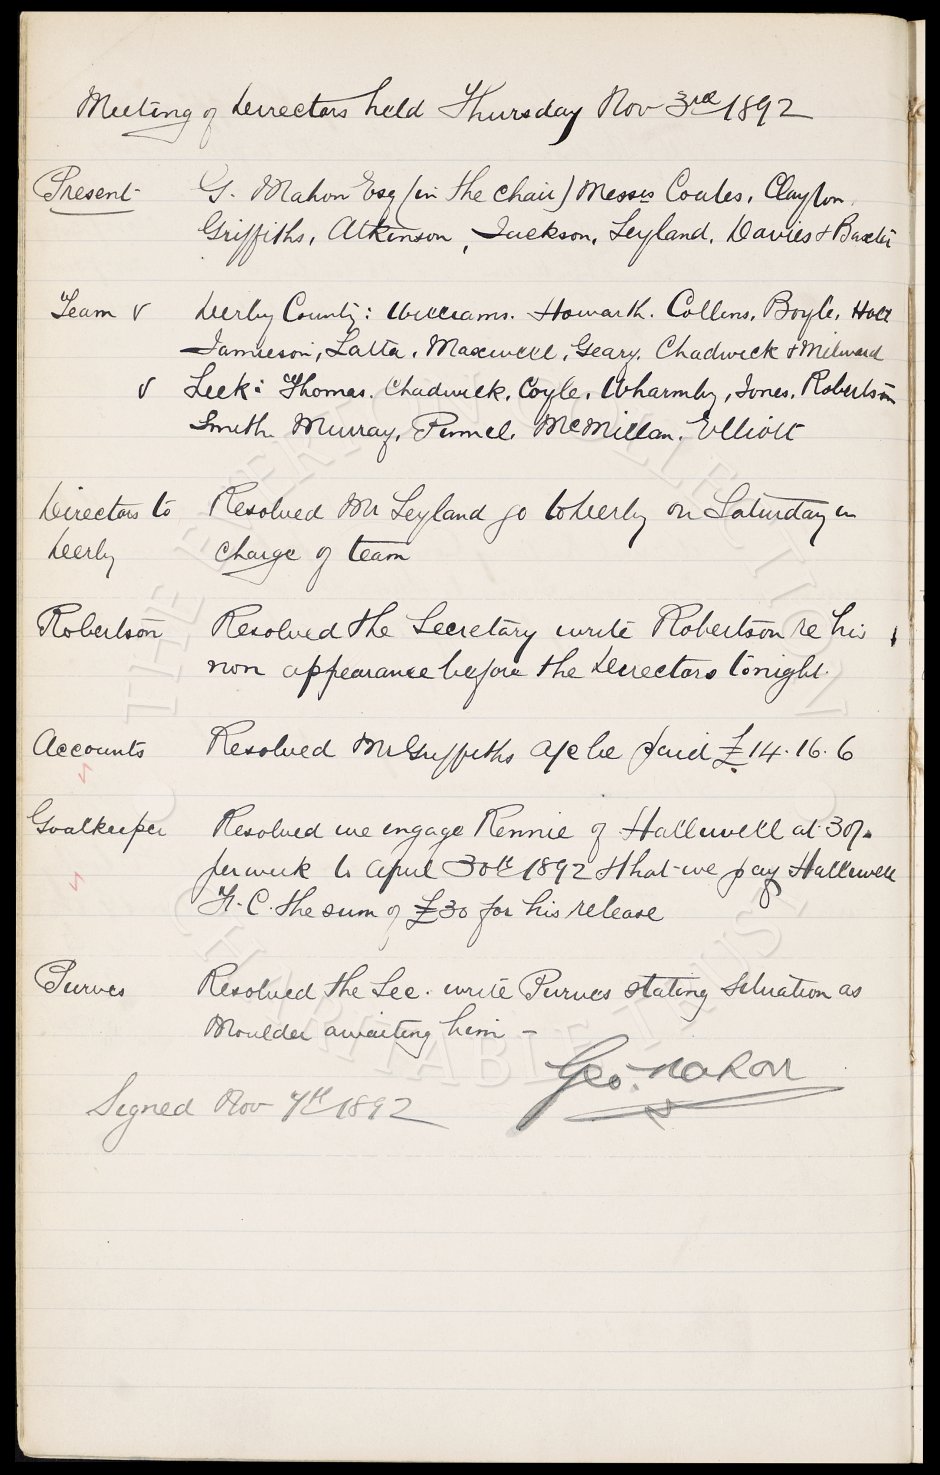 Meeting of Directors held Thursday Nov 3rd 1892
Present G. Mahon Esq (in the chair) Messrs Coates, Clayton,
Griffiths, Atkinson, Jackson, Leyland, Davies & Baxter
Team v Derby County: Williams. Howarth. Collins, Boyle, Holt
Jamieson, Latta, Maxwell, Geary, Chadwick & Milward
v Leek: Thomas. Chadwick, Coyle, Wharmby, Jones, Robertson
Smith Murray, Pinnel, McMillan, Elliott
Directors to Resolved Mr Leyland go to Derby on Saturday in
Derby charge of team
Robertson Resolved the Secretary write Robertson re his
non appearance before the Directors tonight.
Accounts Resolved Mr Griffiths a/c be paid £14.16.6
Goalkeeper Resolved we engage Rennie of Halliwell at 30/-
per week to April 30th 1892 & that we pay Halliwell
F.C. the sum of £30 for his release
Purves Resolved the Sec. write Purves stating Situation as
Moulder awaiting him -
Geo. Mahon
Signed Nov 7th 1892
THE EVERTON COLLECTION CHARITABLE TRUST